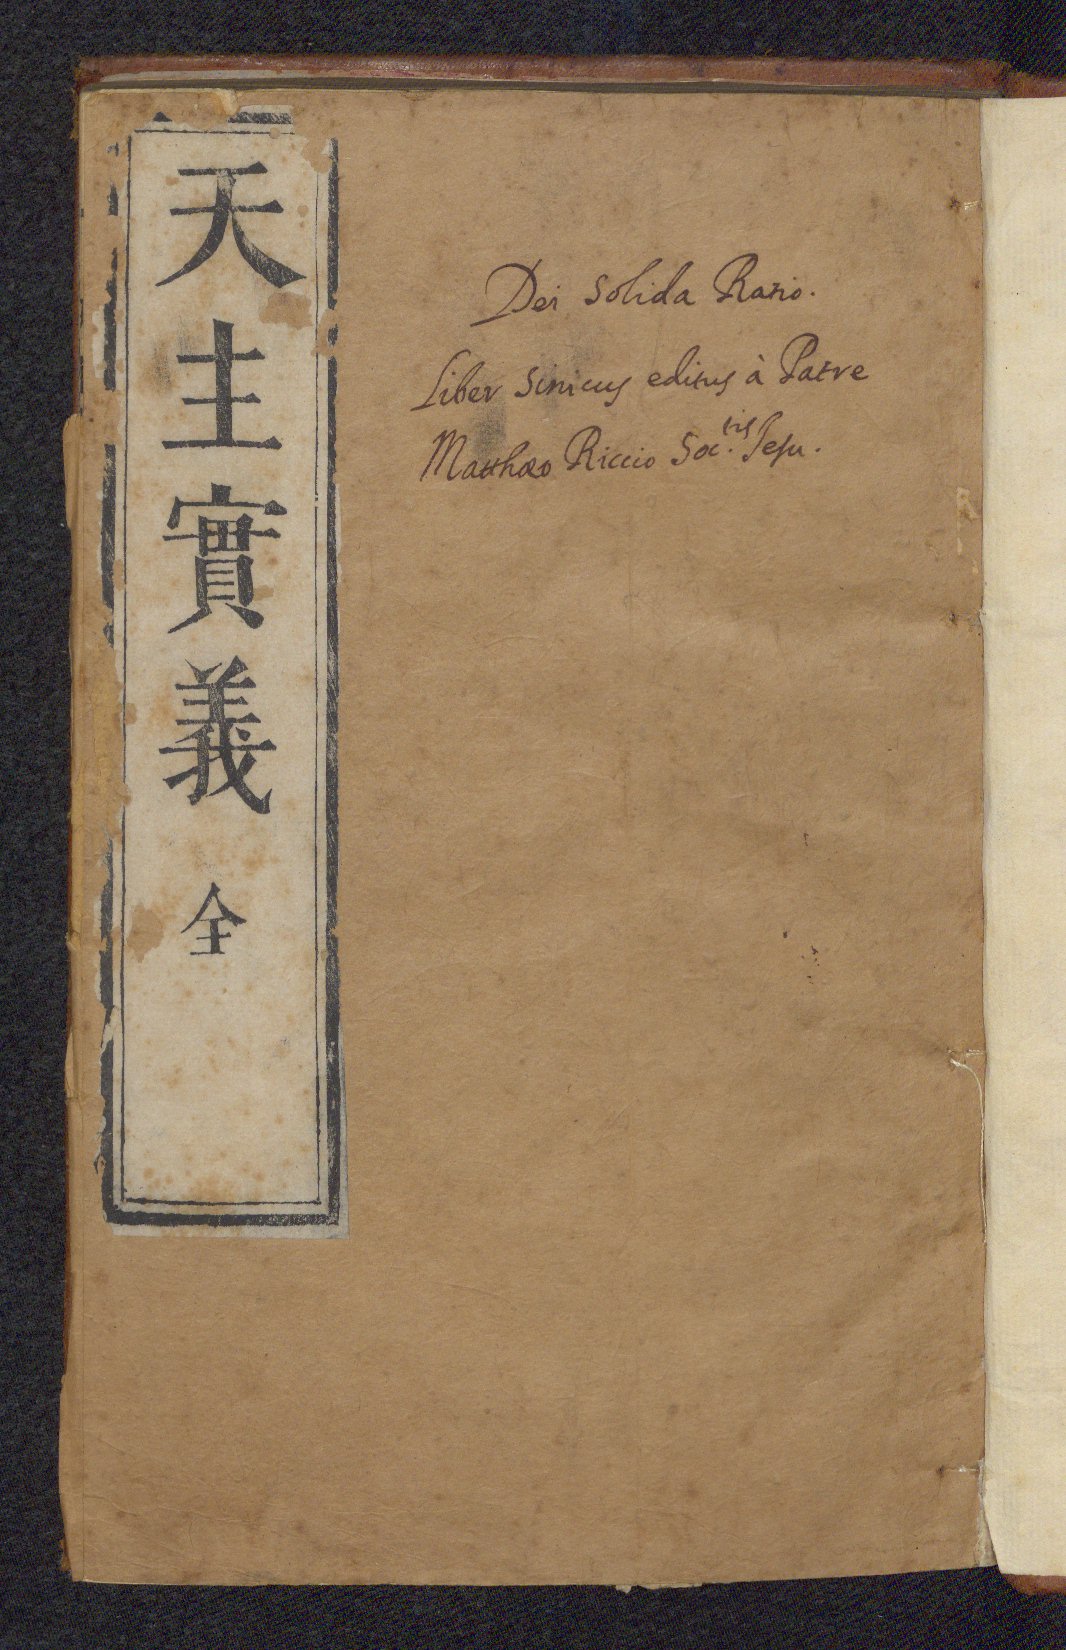 天主實義 全
Dei solida Ratio.
Liber Sinicus editus à Patre
Matthæo Riccio Soc.tis Jesu.